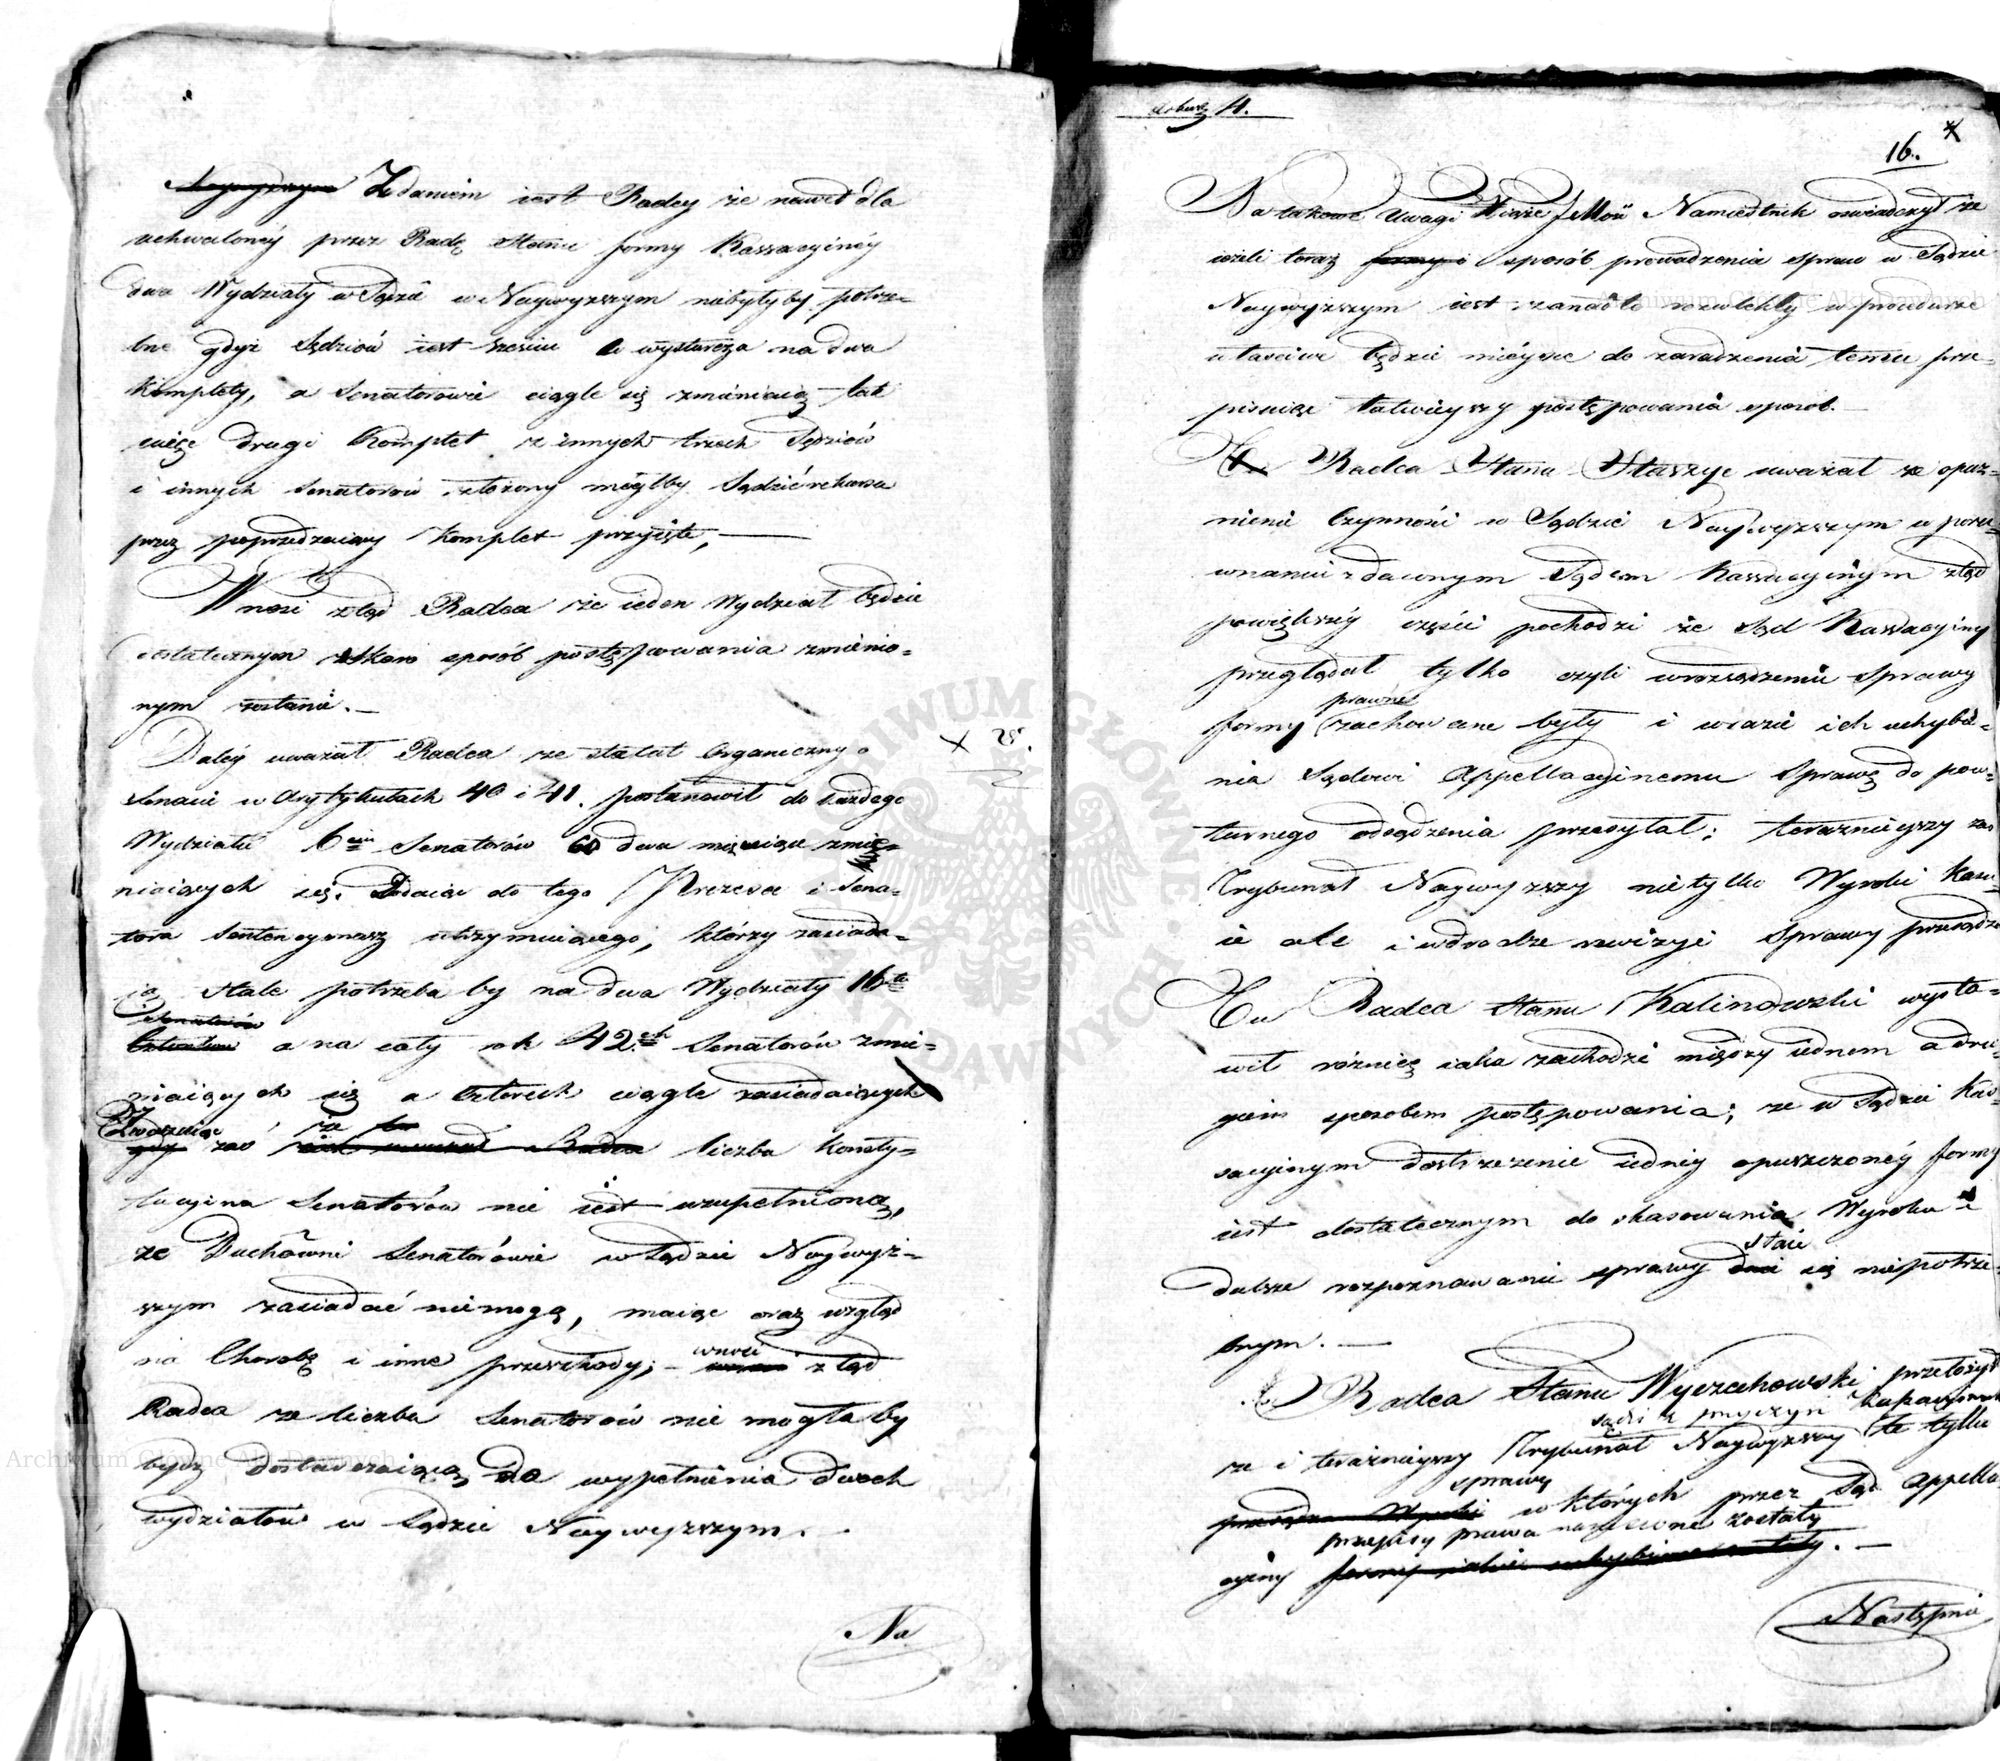 Zdaniem iest Radcy że nawet dla
uchwalonéy przez Radę Stanu formy Kassacyinéy
dwa Wydziały w Sądzie w Naywyzszym niebyłyby potrze-
bne gdyż Sędziów iest sześciu co wystarcza na dwa
Komplety, a Senatorowie ciągle się zmieniaią tak
więc drugi Komplet z innych trzech Sędziów
i innych Senatorów złożony mógłby Sądzić rekursa
przez poprzedzaiący Komplet przyięte, —
Wnosi ztąd Radca że ieden Wydział będzie
dostatecznym skoro sposób postępowania zmienio-
nym zostanie. —
Daléy uważał Radca że Statut Organiczny o
Senacie w Artykułach 40 i 41. postanowił do każdego
Wydziału 6ciu Senatorów co dwa miesiące zmie-
niaiących się. Dodaiąc do tego Prezesa i Sena-
tora Sentencyonarz utrzymuiącego, którzy zasiada-
ią stale potrzeba by na dwa Wydziały 16tu
Senatorów
a na cały rok 42ch Senatorów zmie-
niaiących się a czterech ciągle zasiadaiących
Zważaiąc że
zaś liczba Konsty-
tucyina Senatorów nie iest uzupełniona,
że Duchowni Senatorowie w Sądzie Naywyż-
szym zasiadać niemogą, maiąc oraz wzgląd
na Chorobę i inne przeszkody; — wnosi ztąd
Radca że liczba Senatorów nie mogłaby
bydź dostarczaiącą do wypełnienia dwoch
wydziałów w Sądzie Naywyzszym. —
Na
Arkusz 4.
16.
Na takowe Uwagi Xiąże JeMość Namiestnik oświadczył że
ieżeli teraz sposób prowadzenia spraw w Sądzie
Naywyzszym iest zanadto rozwlekły w procedurze
właściwe będzie mieysce do zaradzenia temu prze-
pisuiąc łatwieyszy postępowania sposob. —
Radca Stanu Staszyc uważał że opoz-
nienie czynności w Sądzie Naywyzszym w poro-
wnaniu z dawnym Sądem Kassacyinym ztąd
powiększéy części pochodzi że Sąd Kassacyiny
przeglądał tylko czyli w rozsądzeniu Sprawy
prawne
formy zachowane były i w razie ich uchybie-
nia Sądowi Appellacyinemu Sprawę do pow-
turnego odsądzenia przesyłał; teraznieyszy zaś
Trybunał Naywyzszy nietylko Wyroki kasu-
ie ale i w drodze rewizyi Sprawy przesądza
Tu Radca Stanu Kalinowski wysta-
wił różnicę iaka zachodzi między iednem a dru-
giem sposobem postępowania; że w Sądzie Kas-
sacyinym dostrzeżenie iednéy opuszczonéy formy
iest dostatecznym do skasowania Wyroku i
staie
dalsze rozpoznawanie sprawy się niepotrze-
bnym. —
Radca Stanu Wyczechowski przełożył
sądzi z przyczyn
że i teraznieyszy Trybunał Naywyzszy te tylko
sprawy
w których przez Sąd Appella-
przepisy prawa naruszone zostały
cyiny . —
Następnie